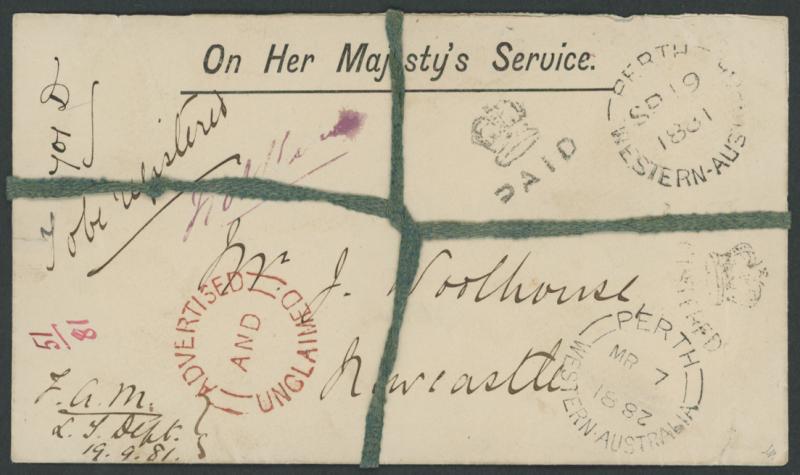 On Her Majesty's Service.
PERTH
SP 19
1881
WESTERN-AUS
PAID
To be registered
Mr. J. Woolhouse
Newcastle
ADVERTISED
AND
UNCLAIMED
51/81
PERTH
MR 7
1882
WESTERN-AUSTRALIA
F.a.m.
L. T. Dept.
19.9.81.